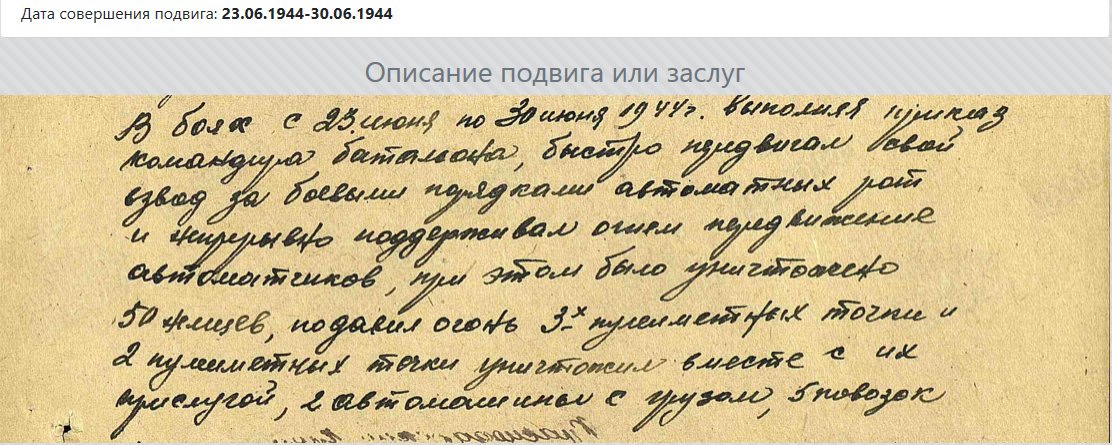 Дата совершения подвига: 23.06.1944-30.06.1944
Описание подвига или заслуг
В боях с 23 июня по 30 июня 1944 г. выполняя приказ
командира батальона, быстро передвигал свой
взвод за боевыми порядками автоматных рот
и непрерывно поддерживал огнем передвижение
автоматчиков, при этом было уничтожено
50 немцев, подавил огонь 3-х пулеметных точки и
2 пулеметных точки уничтожил вместе с их
прислугой, 2 автомашины с грузом, 5 повозок